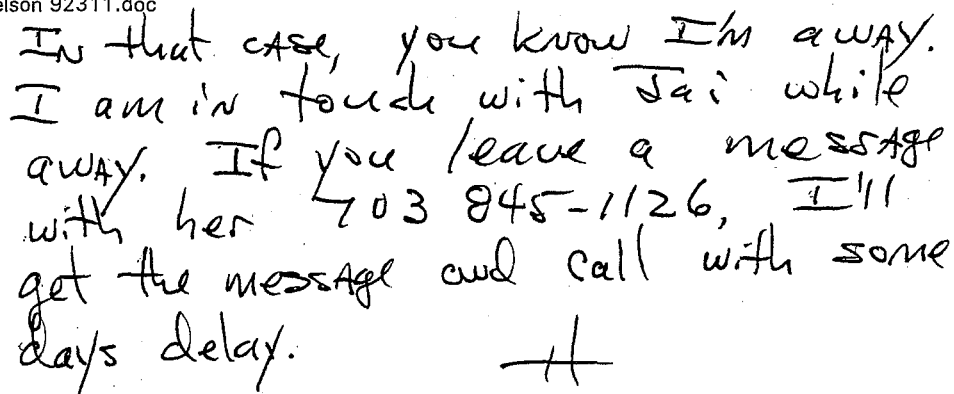 elson 92311.doc
In that case, you know I'm away.
I am in touch with Jai while
away. If you leave a message
with her 403 845-1126, I'll
get the message and call with some
days delay. H